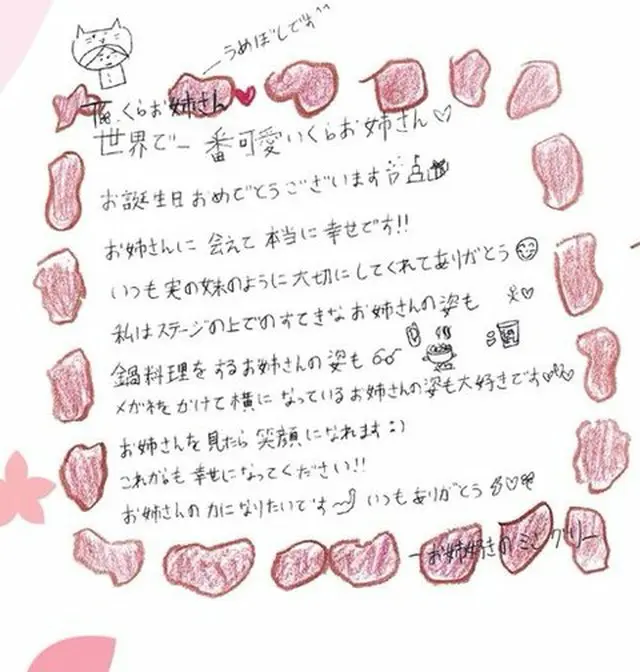 うめぼしです^^
さくらお姉さん
世界で一番可愛いくらお姉さん♡
お誕生日おめでとうございます
お姉さんに会えて本当に幸せです!!
いつも実の妹のように大切にしてくれてありがとう
私はステージの上でのすてきなお姉さんの姿も
鍋料理をするお姉さんの姿も
メガネをかけて横になっているお姉さんの姿も大好きです♡♡
お姉さんを見たら笑顔になれます:)
これからも幸せになってください!!
お姉さんの力になりたいです いつもありがとう
ーお姉好きのミングリー